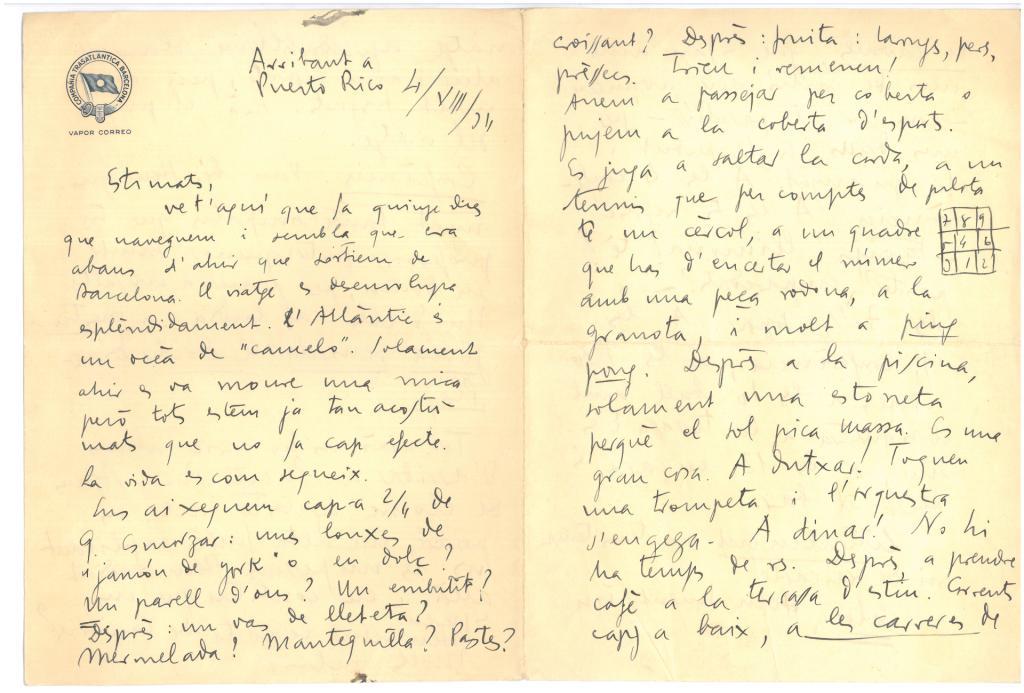 COMPAÑIA TRASATLÁNTICA BARCELONA
VAPOR CORREO
Arribant a
Puerto Rico 4/VIII/34
Estimats,
vet'aquí que fa quinze dies
que naveguem i sembla que era
abans d'ahir que sortíem de
Barcelona. El viatge es desenvolupa
esplèndidament. L'Atlàntic és
un oceà de "camelo". Solament
ahir es va moure una mica
però tots estem ja tan acostu-
mats que no fa cap efecte.
La vida es com segueix.
Ens aixequem cap a 2/4 de
9. Esmorzar: unes lonxes de
"jamón de york" o en dolç?
Un parell d'ous? Un embutit?
Després: un vas de lleteta?
Mermelada? Mantequilla? Pastes?
croissant? Després: fruita: taronjs, pers,
préssecs. Trieu i remeneu!
Anem a passejar per coberta o
pujem a la coberta d'esports.
Es juga a saltar la corda, a un
tennis que per comptes de pilota
té un cèrcol, a un quadre
7 8 9
5 4 6
0 1 2
que has d'encertar el número
amb una peça rodona, a la
granota, i molt a ping
pong. Després a la piscina,
solament una estoneta
perquè el sol pica massa. Es una
gran cosa. A dutxar! Toquen
una trompeta i l'orquestra
s'engega. A dinar! No hi
ha temps de res. Després, a prendre
cafè a la terrassa d'estiu. Corrents
cap a baix, a les carreres de